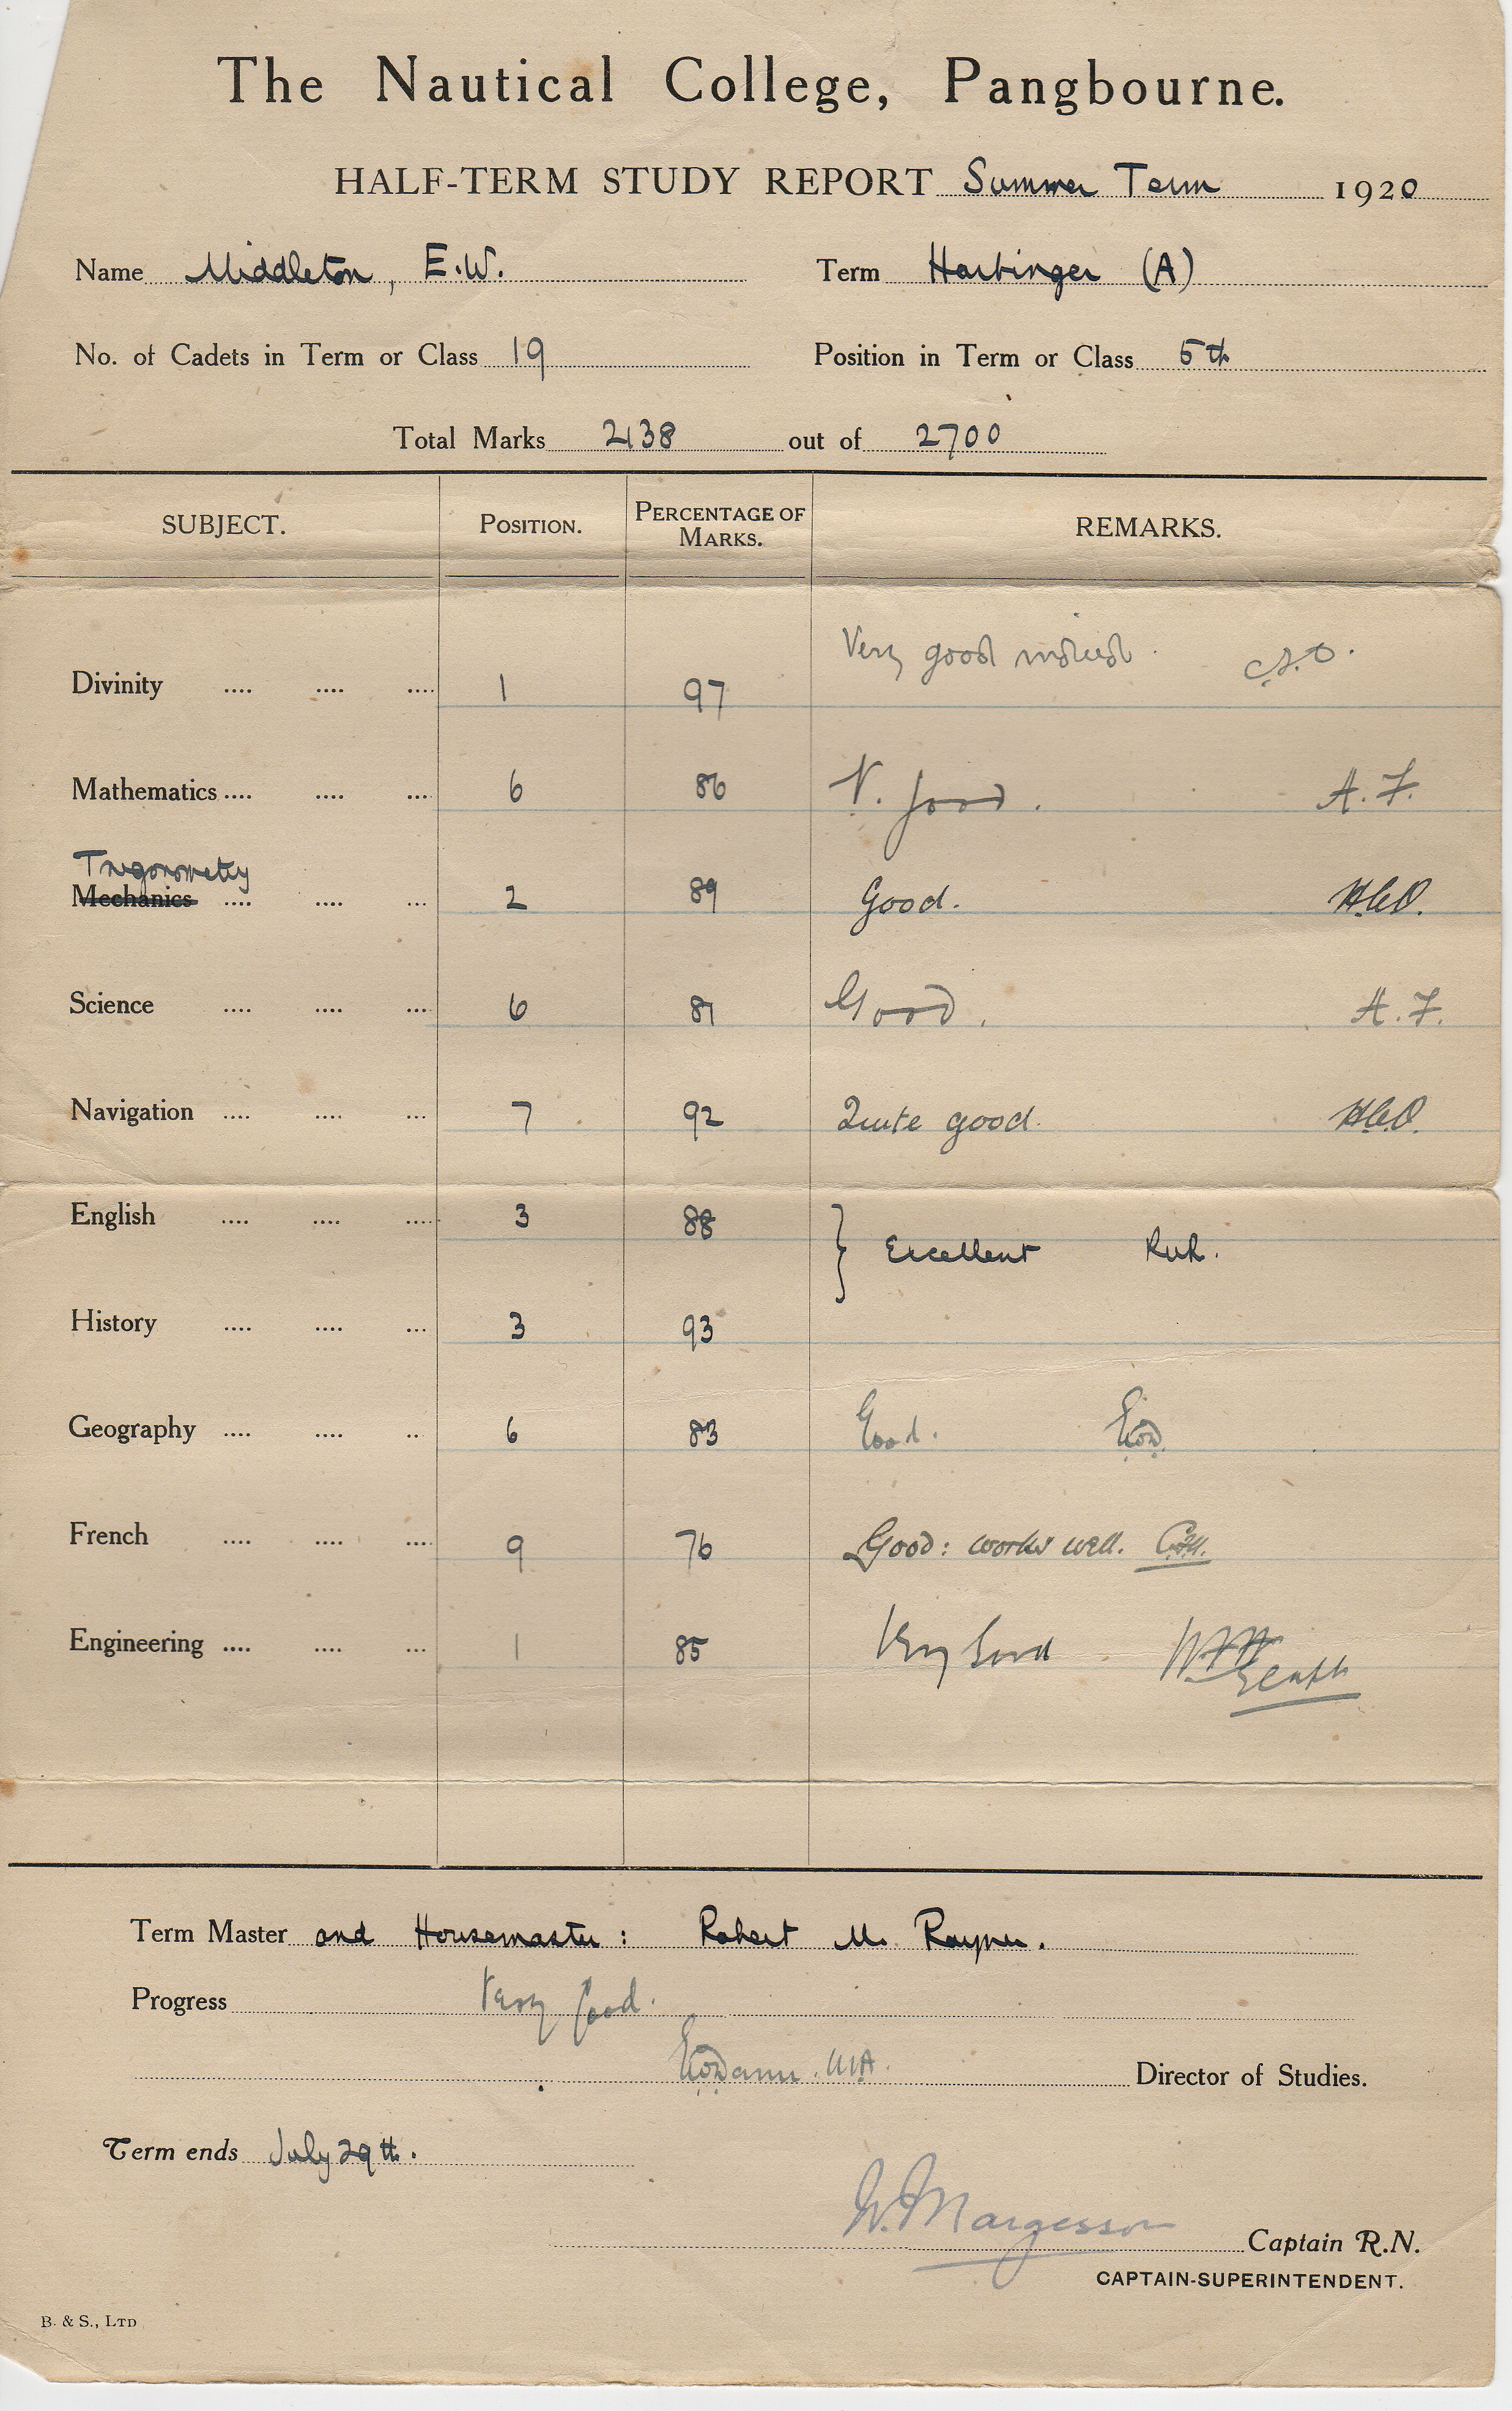 The Nautical College, Pangbourne.
HALF-TERM STUDY REPORT Summer Term 1920
Name Middleton, E.W. Term Harbinger (A)
No. of Cadets in Term or Class 19 Position in Term or Class 5th
Total Marks 2138 out of 2700
SUBJECT. POSITION. PERCENTAGE OF MARKS. REMARKS.
Divinity .... .... .... 1 97 Very good indeed.
Mathematics .... .... .... 6 86 V. good. A.F.
Trigonometry
Mechanics .... .... ... 2 89 Good.
Science .... .... .... 6 81 Good. A.F.
Navigation .... .... ... 7 92 Quite good.
English .... .... .... 3 88 } Excellent
History .... .... ... 3 93
Geography .... .... .. 6 83 Good.
French .... .... .... 9 76 Good: works well.
Engineering .... .... ... 1 85 Very Good
Term Master and Housemaster: Robert M. Rayner.
Progress Very good.
M.A. Director of Studies.
Term ends July 29th.
W. Margesson Captain R.N.
CAPTAIN-SUPERINTENDENT.
B. & S., LTD